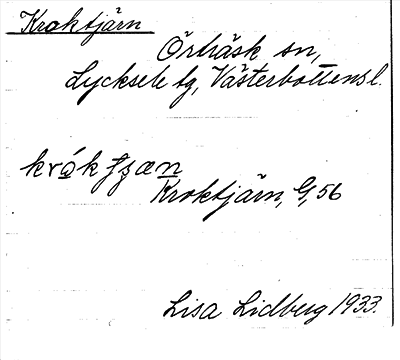 Kroktjärn
Örträsk sn,
Lycksele tg, Västerbottens l.
Kroktjärn, G, 56
Lisa Lidberg 1933.